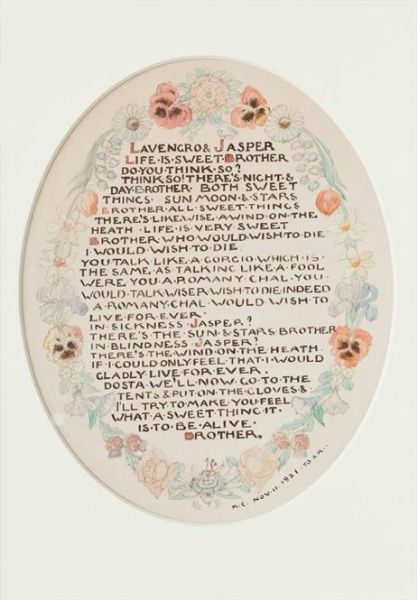 LAVENGRO & JASPER
LIFE·IS·SWEET·BROTHER
DO·YOU·THINK·SO?
THINK·SO! THERE'S·NIGHT·&
DAY·BROTHER· BOTH SWEET
THINGS· SUN·MOON·& STARS
BROTHER·ALL·SWEET·THINGS
THERE'S·LIKEWISE·A·WIND·ON·THE
HEATH· LIFE·IS·VERY SWEET
BROTHER·WHO·WOULD·WISH·TO·DIE
I·WOULD·WISH·TO·DIE.
YOU·TALK·LIKE·A·GORGIO·WHICH·IS·
THE·SAME, AS·TALKING·LIKE·A·FOOL
WERE·YOU·A·ROMANY·CHAL·YOU·
WOULD·TALK·WISER·WISH·TO·DIE·INDEED
A·ROMANY·CHAL·WOULD·WISH·TO
LIVE·FOR·EVER.
IN·SICKNESS·JASPER?
THERE'S·THE·SUN·&·STARS·BROTHER
IN·BLINDNESS·JASPER?
THERE'S·THE·WIND·ON·THE·HEATH.
IF·I·COULD·ONLY·FEEL·THAT·I·WOULD
GLADLY·LIVE·FOR·EVER.
DOSTA·WE'LL·NOW·GO·TO·THE
TENTS·&·PUT·ON·THE·GLOVES·&·
I'LL·TRY·TO·MAKE·YOU·FEEL
WHAT·A·SWEET·THING·IT·
IS·TO·BE·ALIVE·
BROTHER.
NOV. 11. 1921. TO